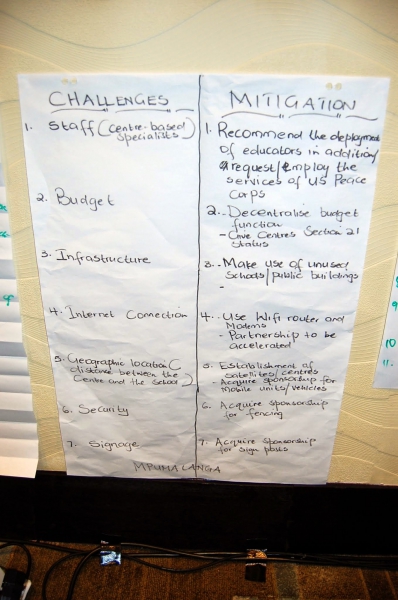 CHALLENGES
1. Staff (Centre-based
specialists)
2. Budget
3. Infrastructure
4. Internet Connection
5. Geographic location (
distance between the
Centre and the School)
6. Security
7. Signage
MPUMALANGA
MITIGATION
1. Recommend the deployment
of educators in addition/
request/employ the
services of US Peace
Corps
2. - Decentralise budget
function
- Give Centres Section 21
status
3. - Make use of unused
schools/public buildings
-
4. - Use Wifi router and
Modems
- Partnership to be
accelerated
5. Establishment of
satellites/centres
- Acquire sponsorship for
Mobile units/vehicles
6. Acquire sponsorship
for fencing
7. Acquire sponsorship
for sign posts
9
10
11.